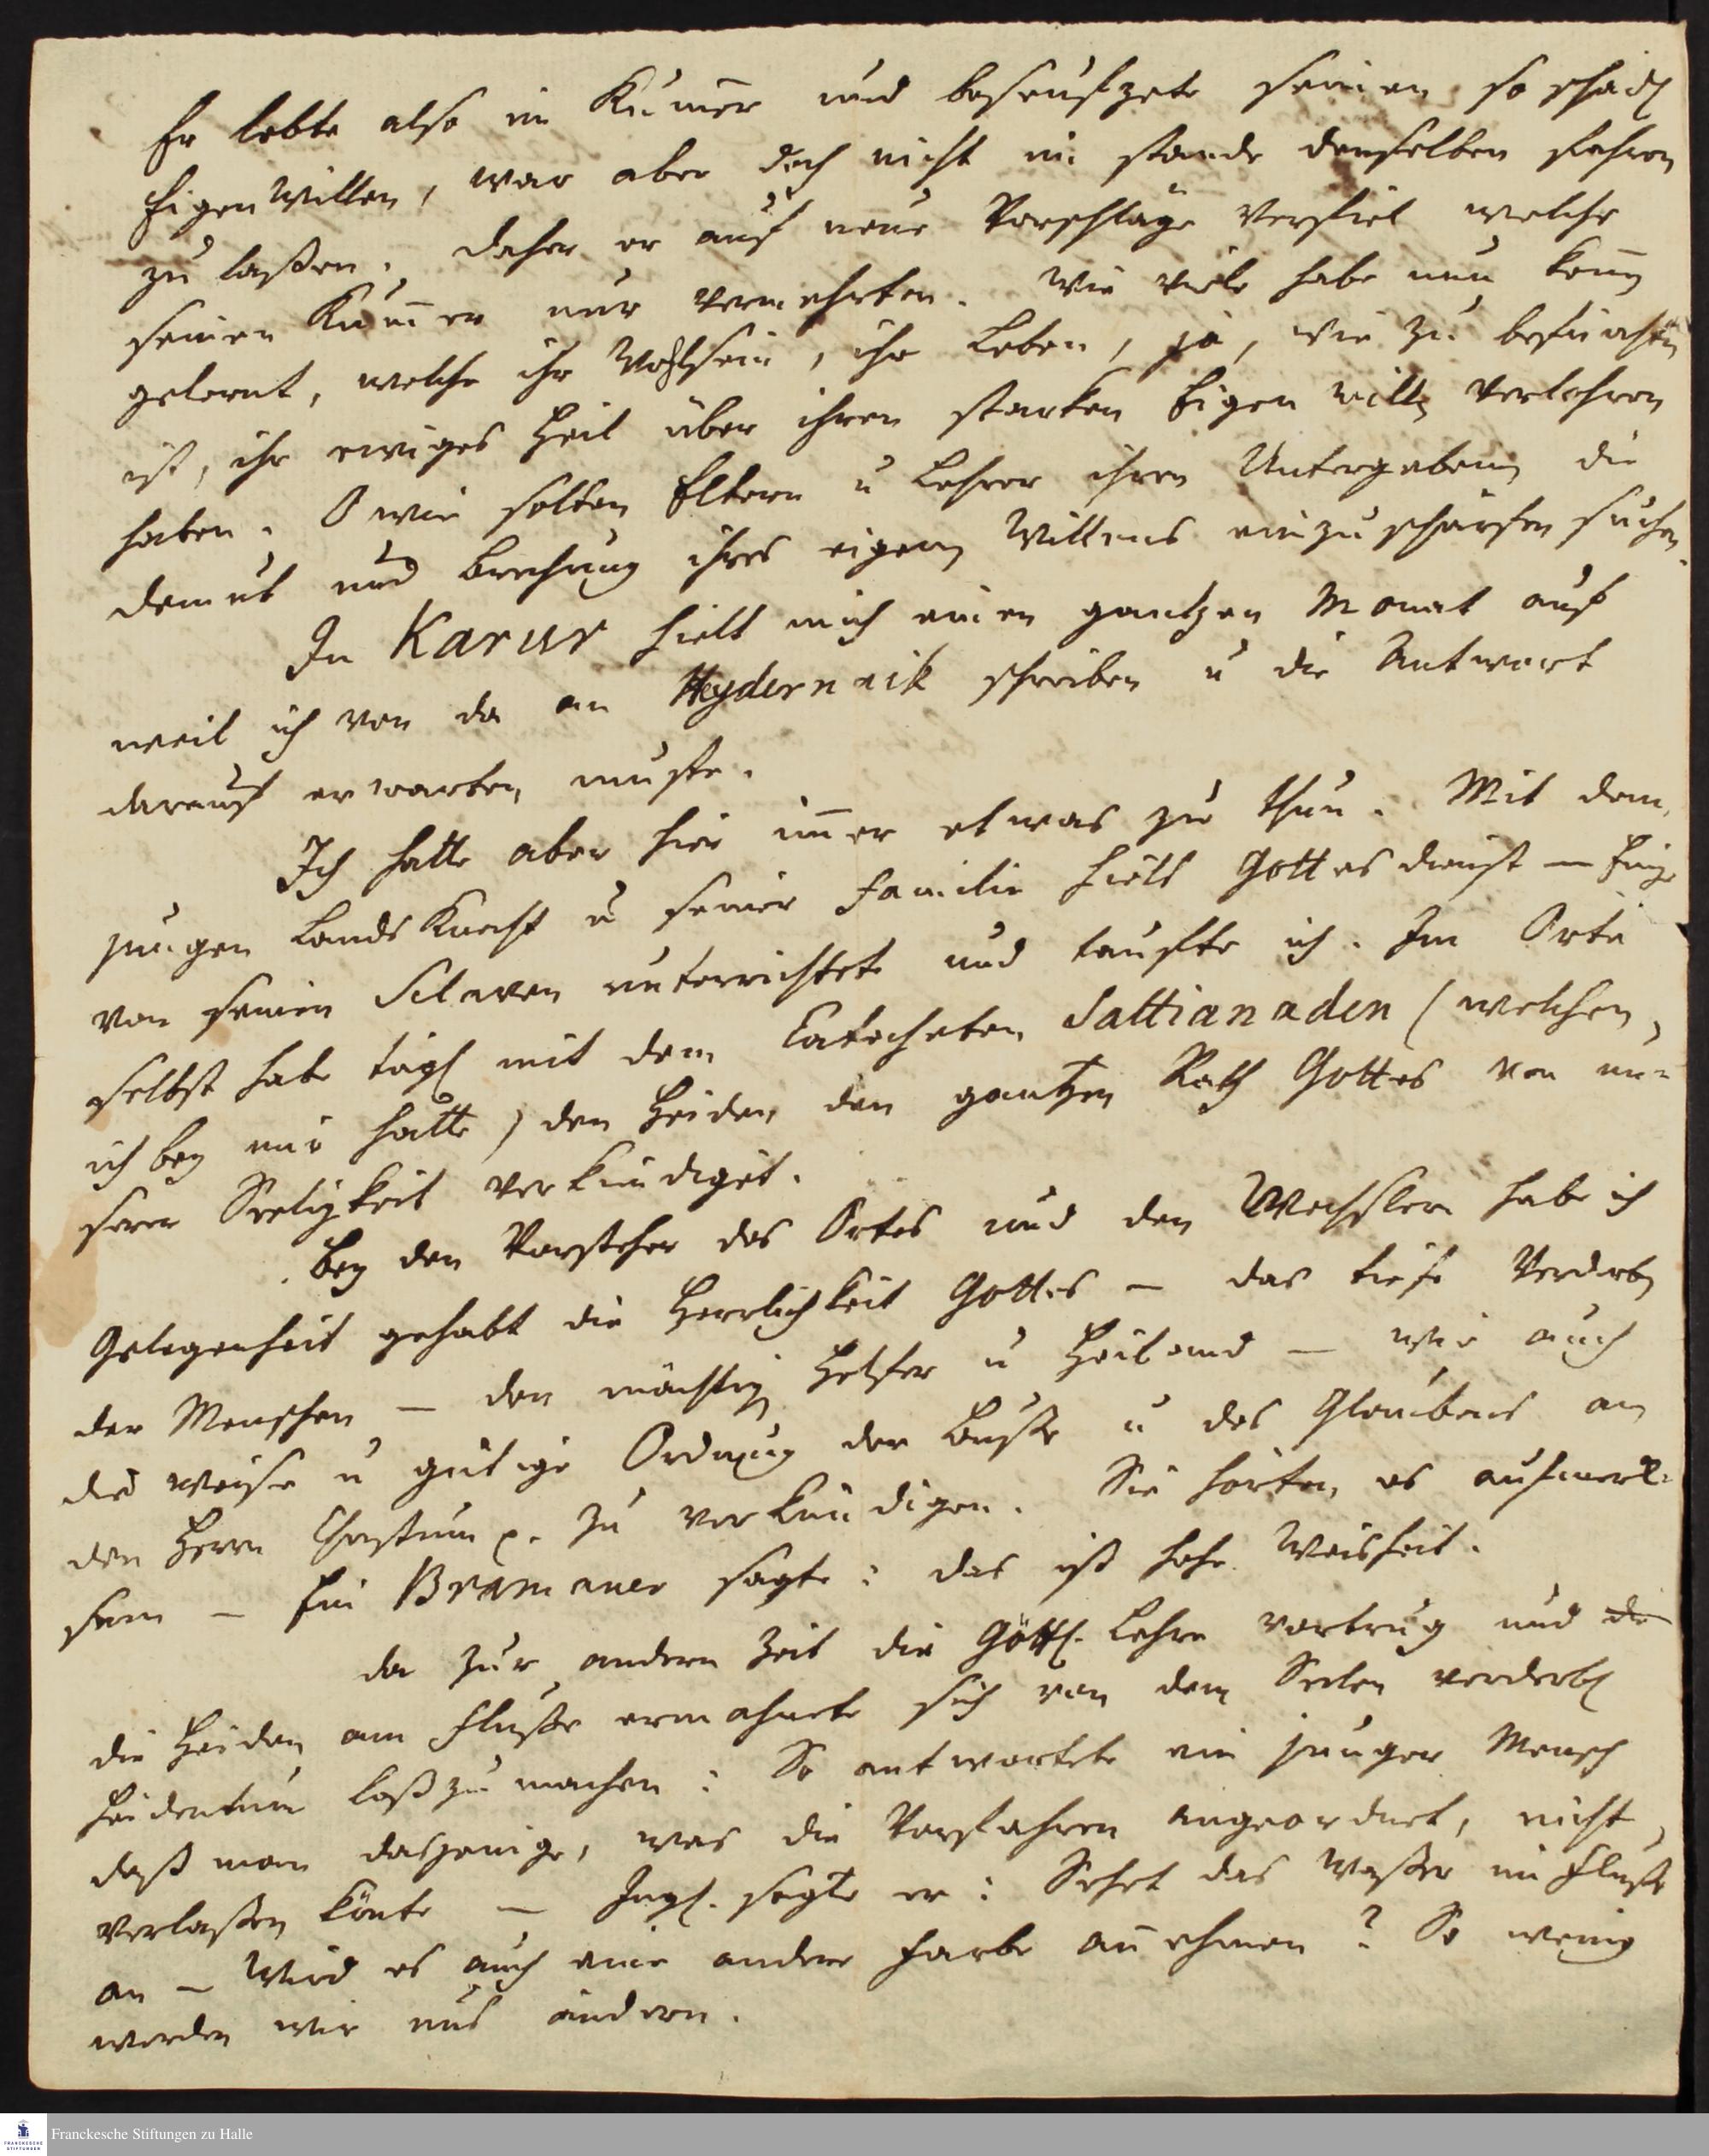 Er lebte also in Kum̅er und beseufzete seinen so schädl
Eigen Willen, war aber doch nicht im stande denselben fahren
zu laßen. Daher er auf neue Vorschläge verfiel welche
seinen Kum̅er nur vermehrten. Wie viele habe nun kenn̅
gelernt, welche ihr Wohlsein, ihr Leben, ja, wie zu befürchten
ist, ihr ewiges Heil über ihren starken Eigen willen verlohren
haben. O wie solten Eltern u Lehrer ihren Untergebenen die
demut und Brechung ihres eigenen Willens einzuschärfen suchen.
In Karur hielt mich einen gantzen Monat auf
weil ich von da an Heydernaik schreiben u die Antwort
darauf erwarten muste.
Ich hatte aber hier im̅er etwas zu thun. Mit dem
jungen Lands Knecht u seiner Familie hielt Gottesdienst — Einige
von seinen Sclaven unterrichtete und taufte ich. Im Orte
selbst habe tägl mit dem Catecheten Sattianaden (welchen
ich bey mir hatte) den Heiden den gantzen Rath Gottes von un=
serer Seeligkeit verkündiget.
Bey den Vorsteher des Ortes und den Wechslern habe ich
Gelegenheit gehabt die Herrlichkeit Gottes — das tiefe Verderben
der Menschen — den mächtigen Helfer u Heiland — wie auch
die weise u gütige Ordnung der Buße u des Glaubens an
den Herrn Christum p. zu verkündigen. Sie hörten es aufmerk=
sam — Ein Bramaner sagte: das ist hohe Weisheit.
da zur andern Zeit die Göttl. Lehre vortrug und die
die Heiden am Fluße ermahnete sich von dem Seelen verderbl
Heidentum loßzumachen: So antwortete ein junger Mensch
daß man dasjenige, was die Vorfahren angeordnet, nicht
verlaßen könte — Ingl. sagte er: Sehet das Waßer im Fluße
an — Wird es auch eine andere Farbe an̅ehmen? So wenig
werden wir uns ändern.
Franckesche Stiftungen zu Halle